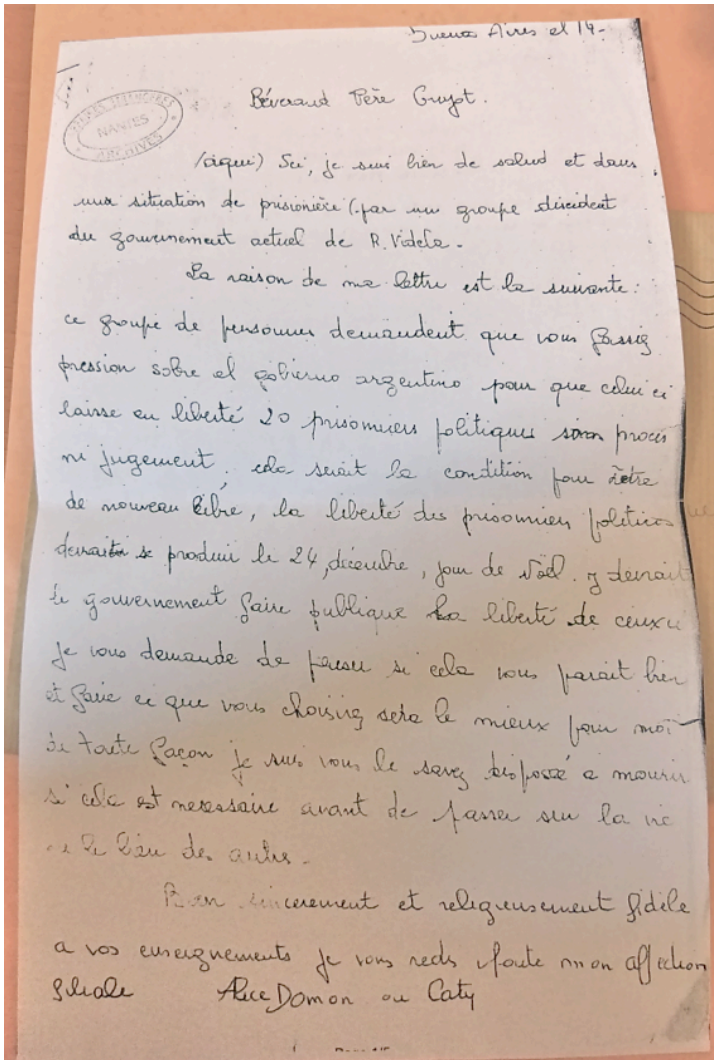 Buenos Aires el 14-
NANTES
ARCHIVES
Réverand Père Guyot.
/aqui) Ici, je suis bien de salud et dans
una situation de prisionière (par un groupe disident
du gouvernement actuel de R. Videla.
La raison de ma lettre est la suivante:
ce groupe de personnes demandent que vous fassiez
pression sobre el gobierno argentino pour que celui ci
laisse en liberté 20 prisonniers politiques sans procés
ni jugement, cela serait la condition pour être
de nouveau libre, la liberté des prisonnien politicos
devrait se produire le 24, décembre, jour de Nöel. y devrait
le gouvernement faire publique la liberté de ceux ci
Je vous demande de penser si cela vous parait bien
et faire ce que vous choising sera le mieux pour moi
de toute façon je suis vous le savez disposé a mourir
si cela est necessaire avant de passer sur la vie
le bien des autres.
Bien sincerement et religieusement fidèle
a vos enseignements je vous redis toute mon affection
filiale Alice Domon ou Caty